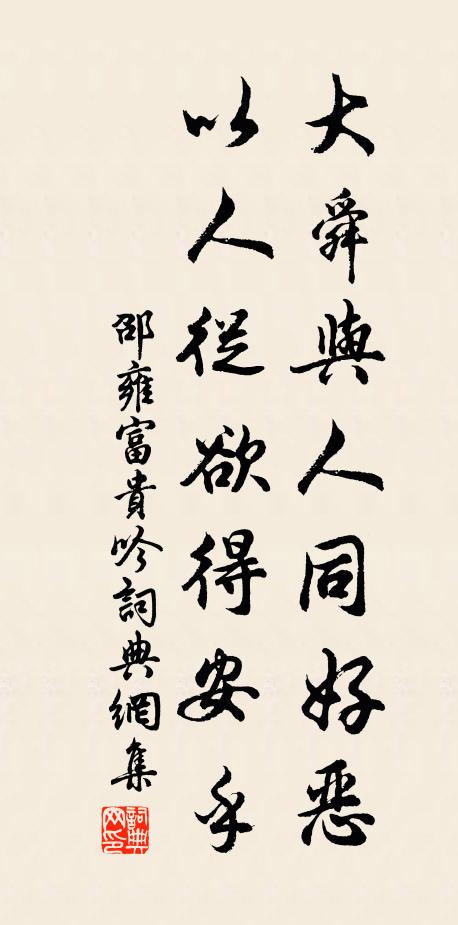 大舜與人同好惡
以人從欲得安乎
邵雍富貴吟詞典網集
詞典網印